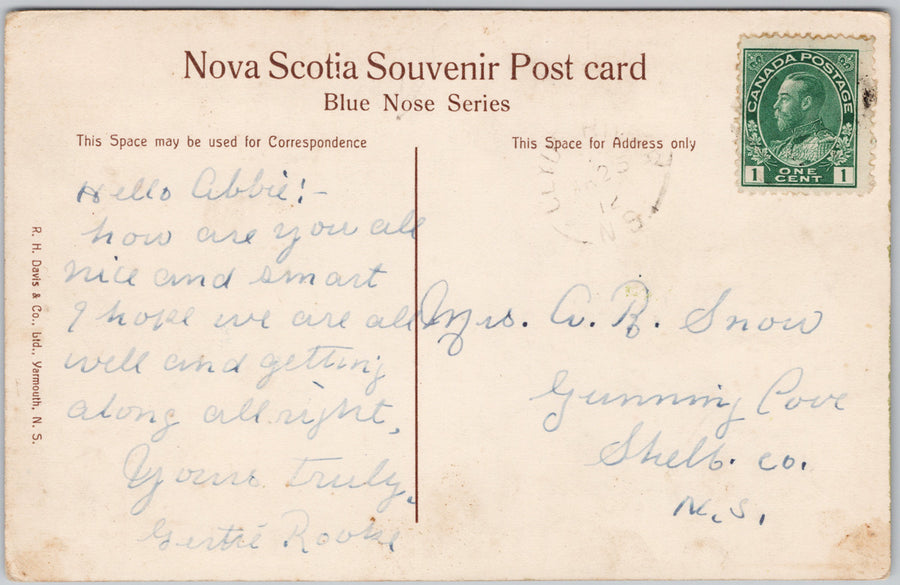 Nova Scotia Souvenir Post card
Blue Nose Series
This Space may be used for Correspondence
This Space for Address only
CANADA POSTAGE
1 ONE CENT 1
25
N S
Hello Abbie!-
how are you all
nice and smart
I hope we are all
well and getting
along allright,
Yours truly,
Gertie
Mrs. A. R. Snow
Gunning Cove
Shelb. co.
N.S.
R. H. Davis & Co., Ltd., Yarmouth, N. S.